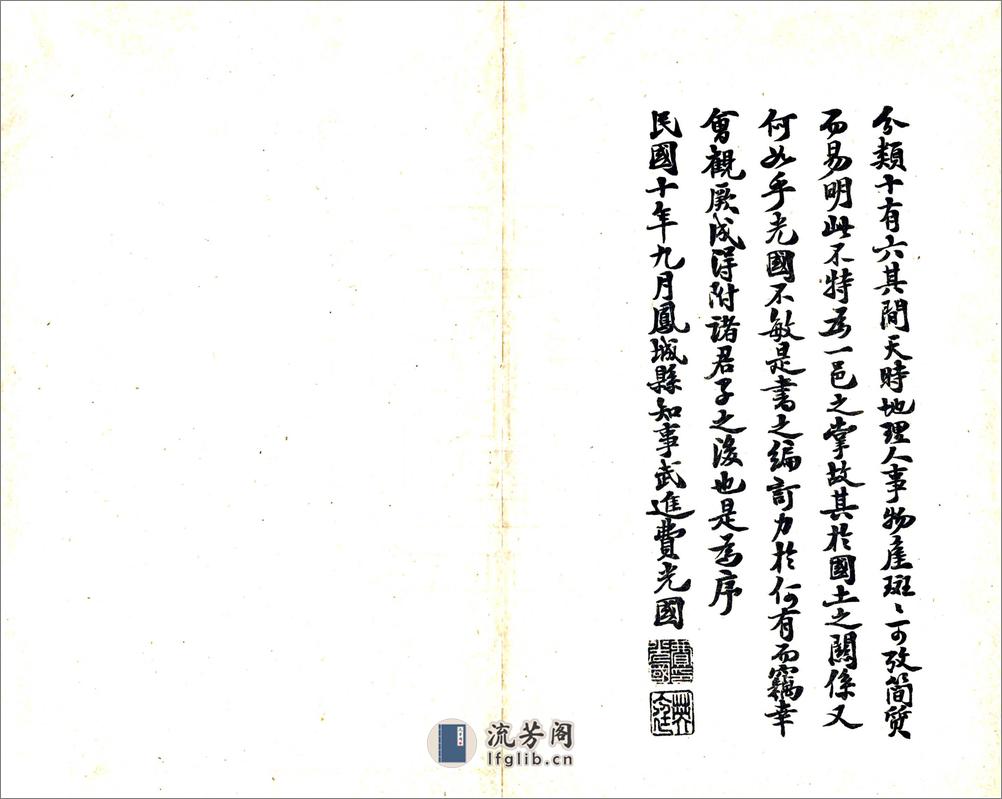 分類十有六其間天時地理人事物產斑〻可攷簡質
而易明此不特為一邑之掌故其於國土之關係又
何如乎光國不敏是書之編訂力於何有而竊幸
會觀厥成得附諸君子之後也是為序
民國十年九月鳳城縣知事武進費光國
流芳阁
lfglib.cn